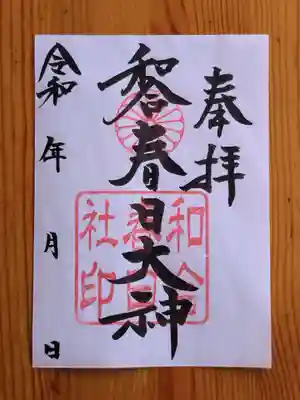 奉拝
和合春日大神
令和 年 月 日
和合
社印